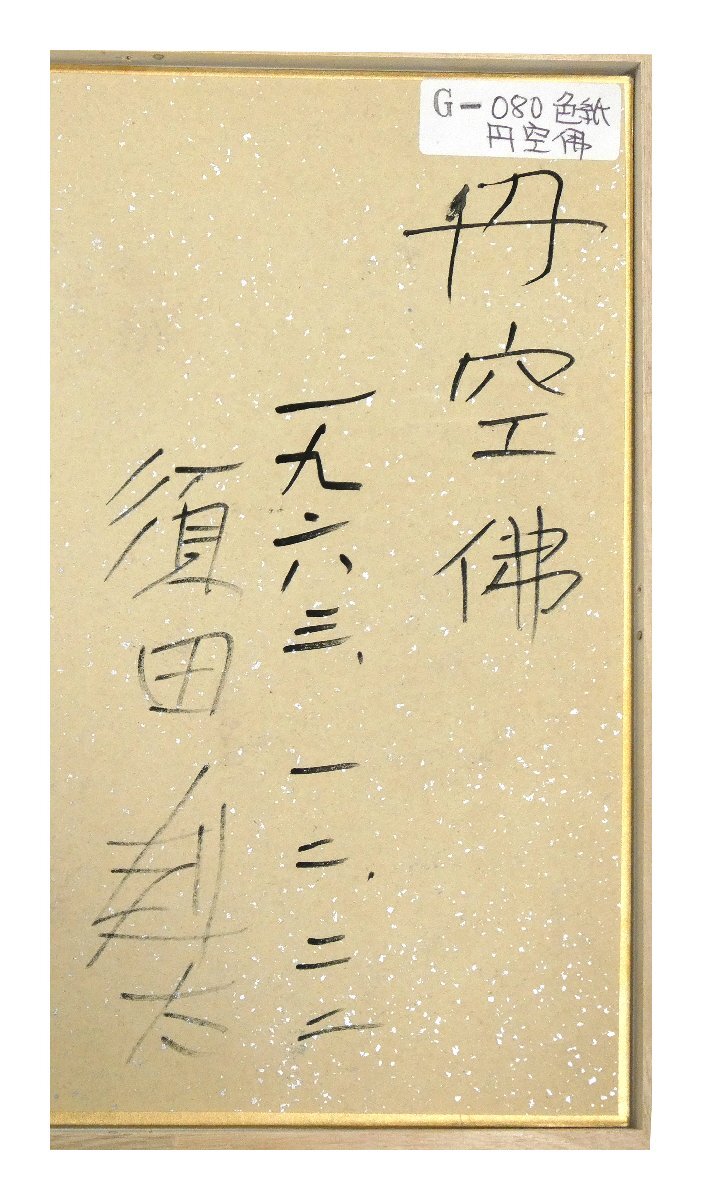 G-080 色紙
円空佛
円空佛
一九六三、一二、二二
須田剋太